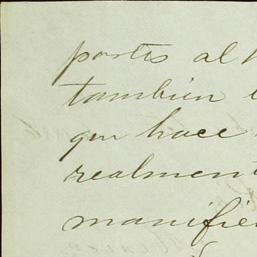 partes al
tambien
que hace
realment
manifie